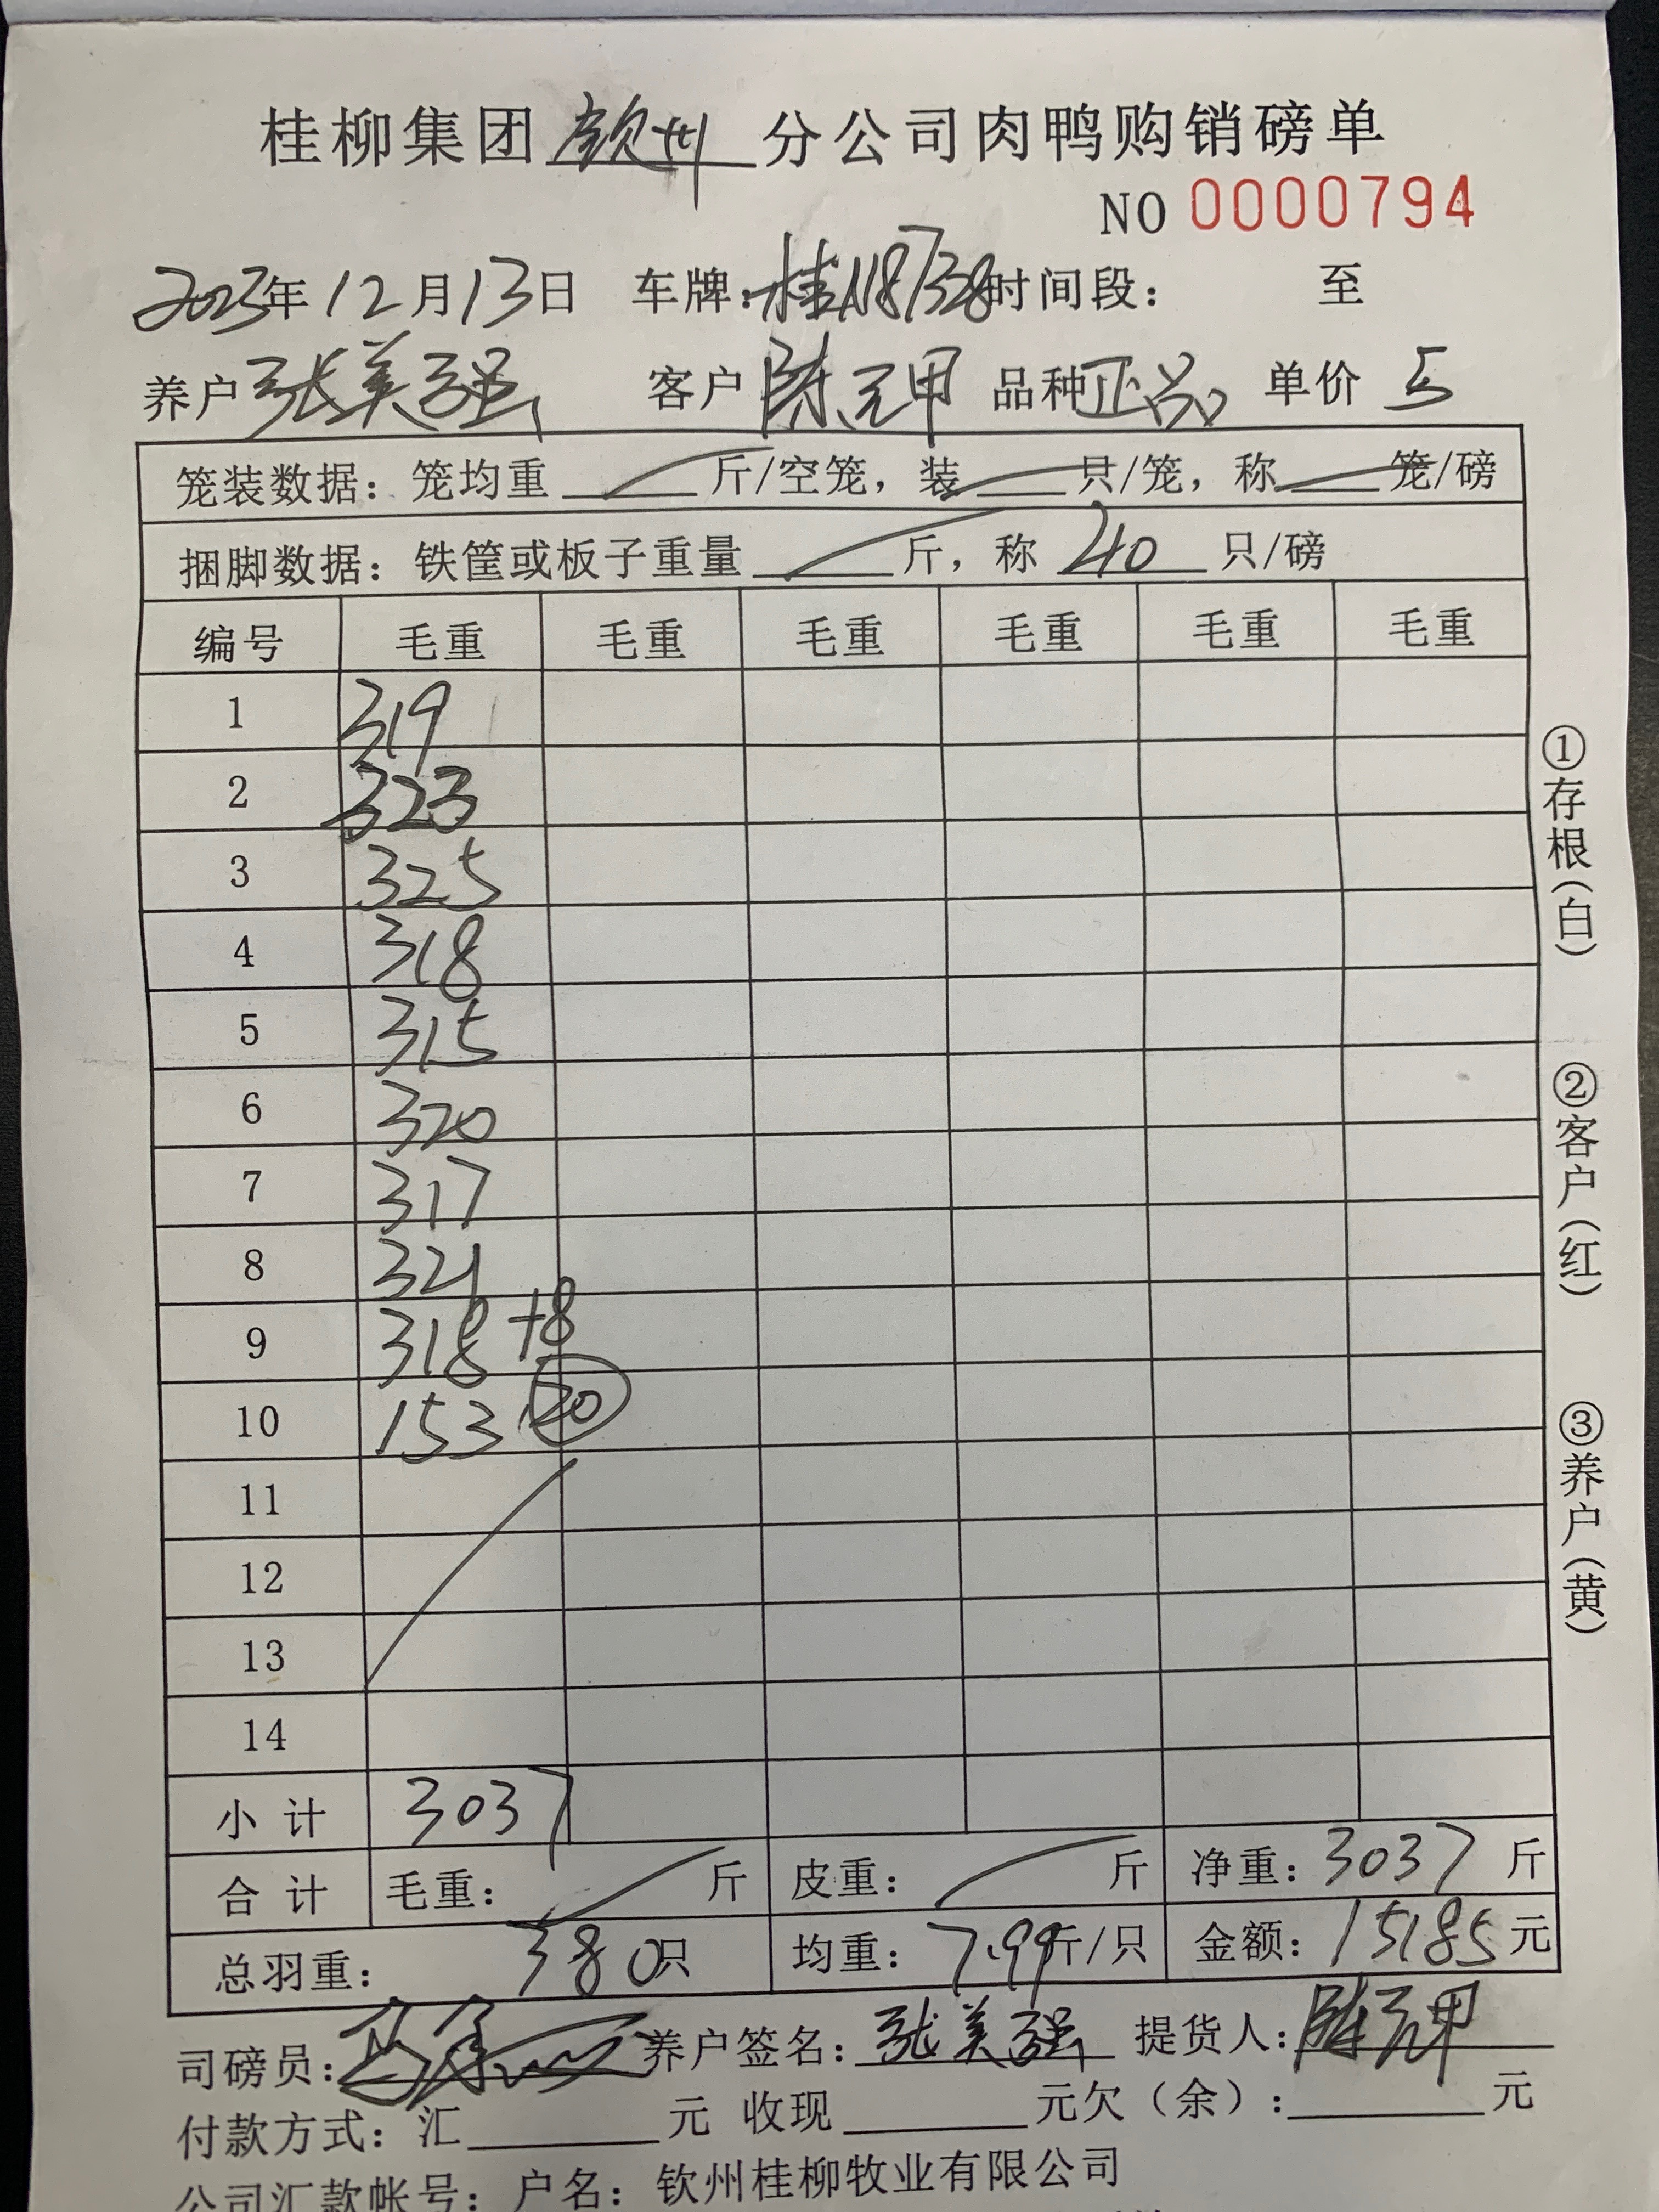 桂柳集团 钦州 分公司肉鸭购销磅单
NO 0000794
2025年 12月 13日 车牌: 桂N18738 时间段: 至
养户 张美强 客户 陈元甲 品种 正品 单价 5
笼装数据: 笼均重 斤/空笼, 装 只/笼, 称 笼/磅
捆脚数据: 铁筐或板子重量 斤, 称 40 只/磅
编号 毛重 毛重 毛重 毛重 毛重 毛重
1 319
2 323
3 325
4 318
5 315
6 320
7 317
8 321
9 318 +8
10 153 20
11
12
13
14
小 计 3037
合 计 毛重: 斤 皮重: 斤 净重: 3037 斤
总羽重: 380只 均重: 7.99斤/只 金额: 15185元
司磅员: 养户签名: 张美强 提货人: 陈元甲
付款方式: 汇 元 收现 元欠（余）: 元
公司汇款帐号: 户名: 钦州桂柳牧业有限公司
①存根(白)
②客户(红)
③养户(黄)